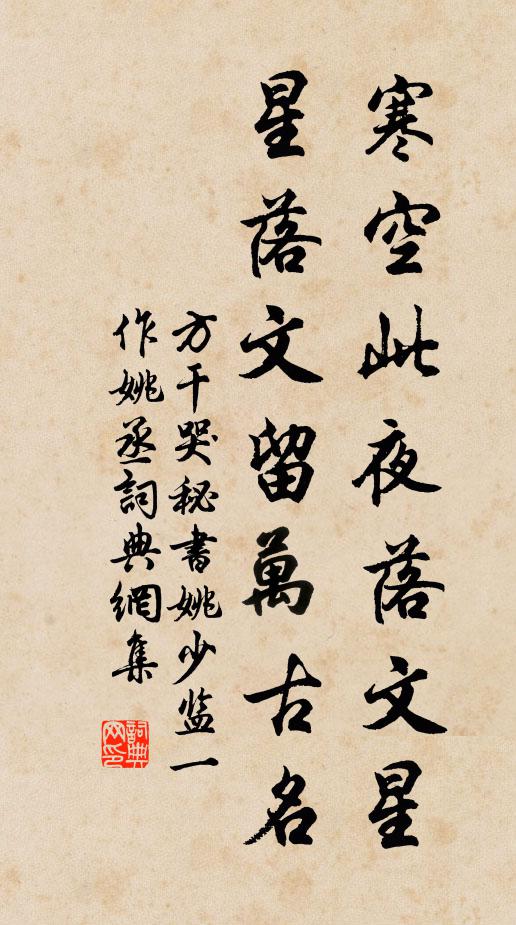 寒空此夜落文星
星落文留萬古名
方干哭秘書姚少监一
作姚丞詞典網集
詞典网印